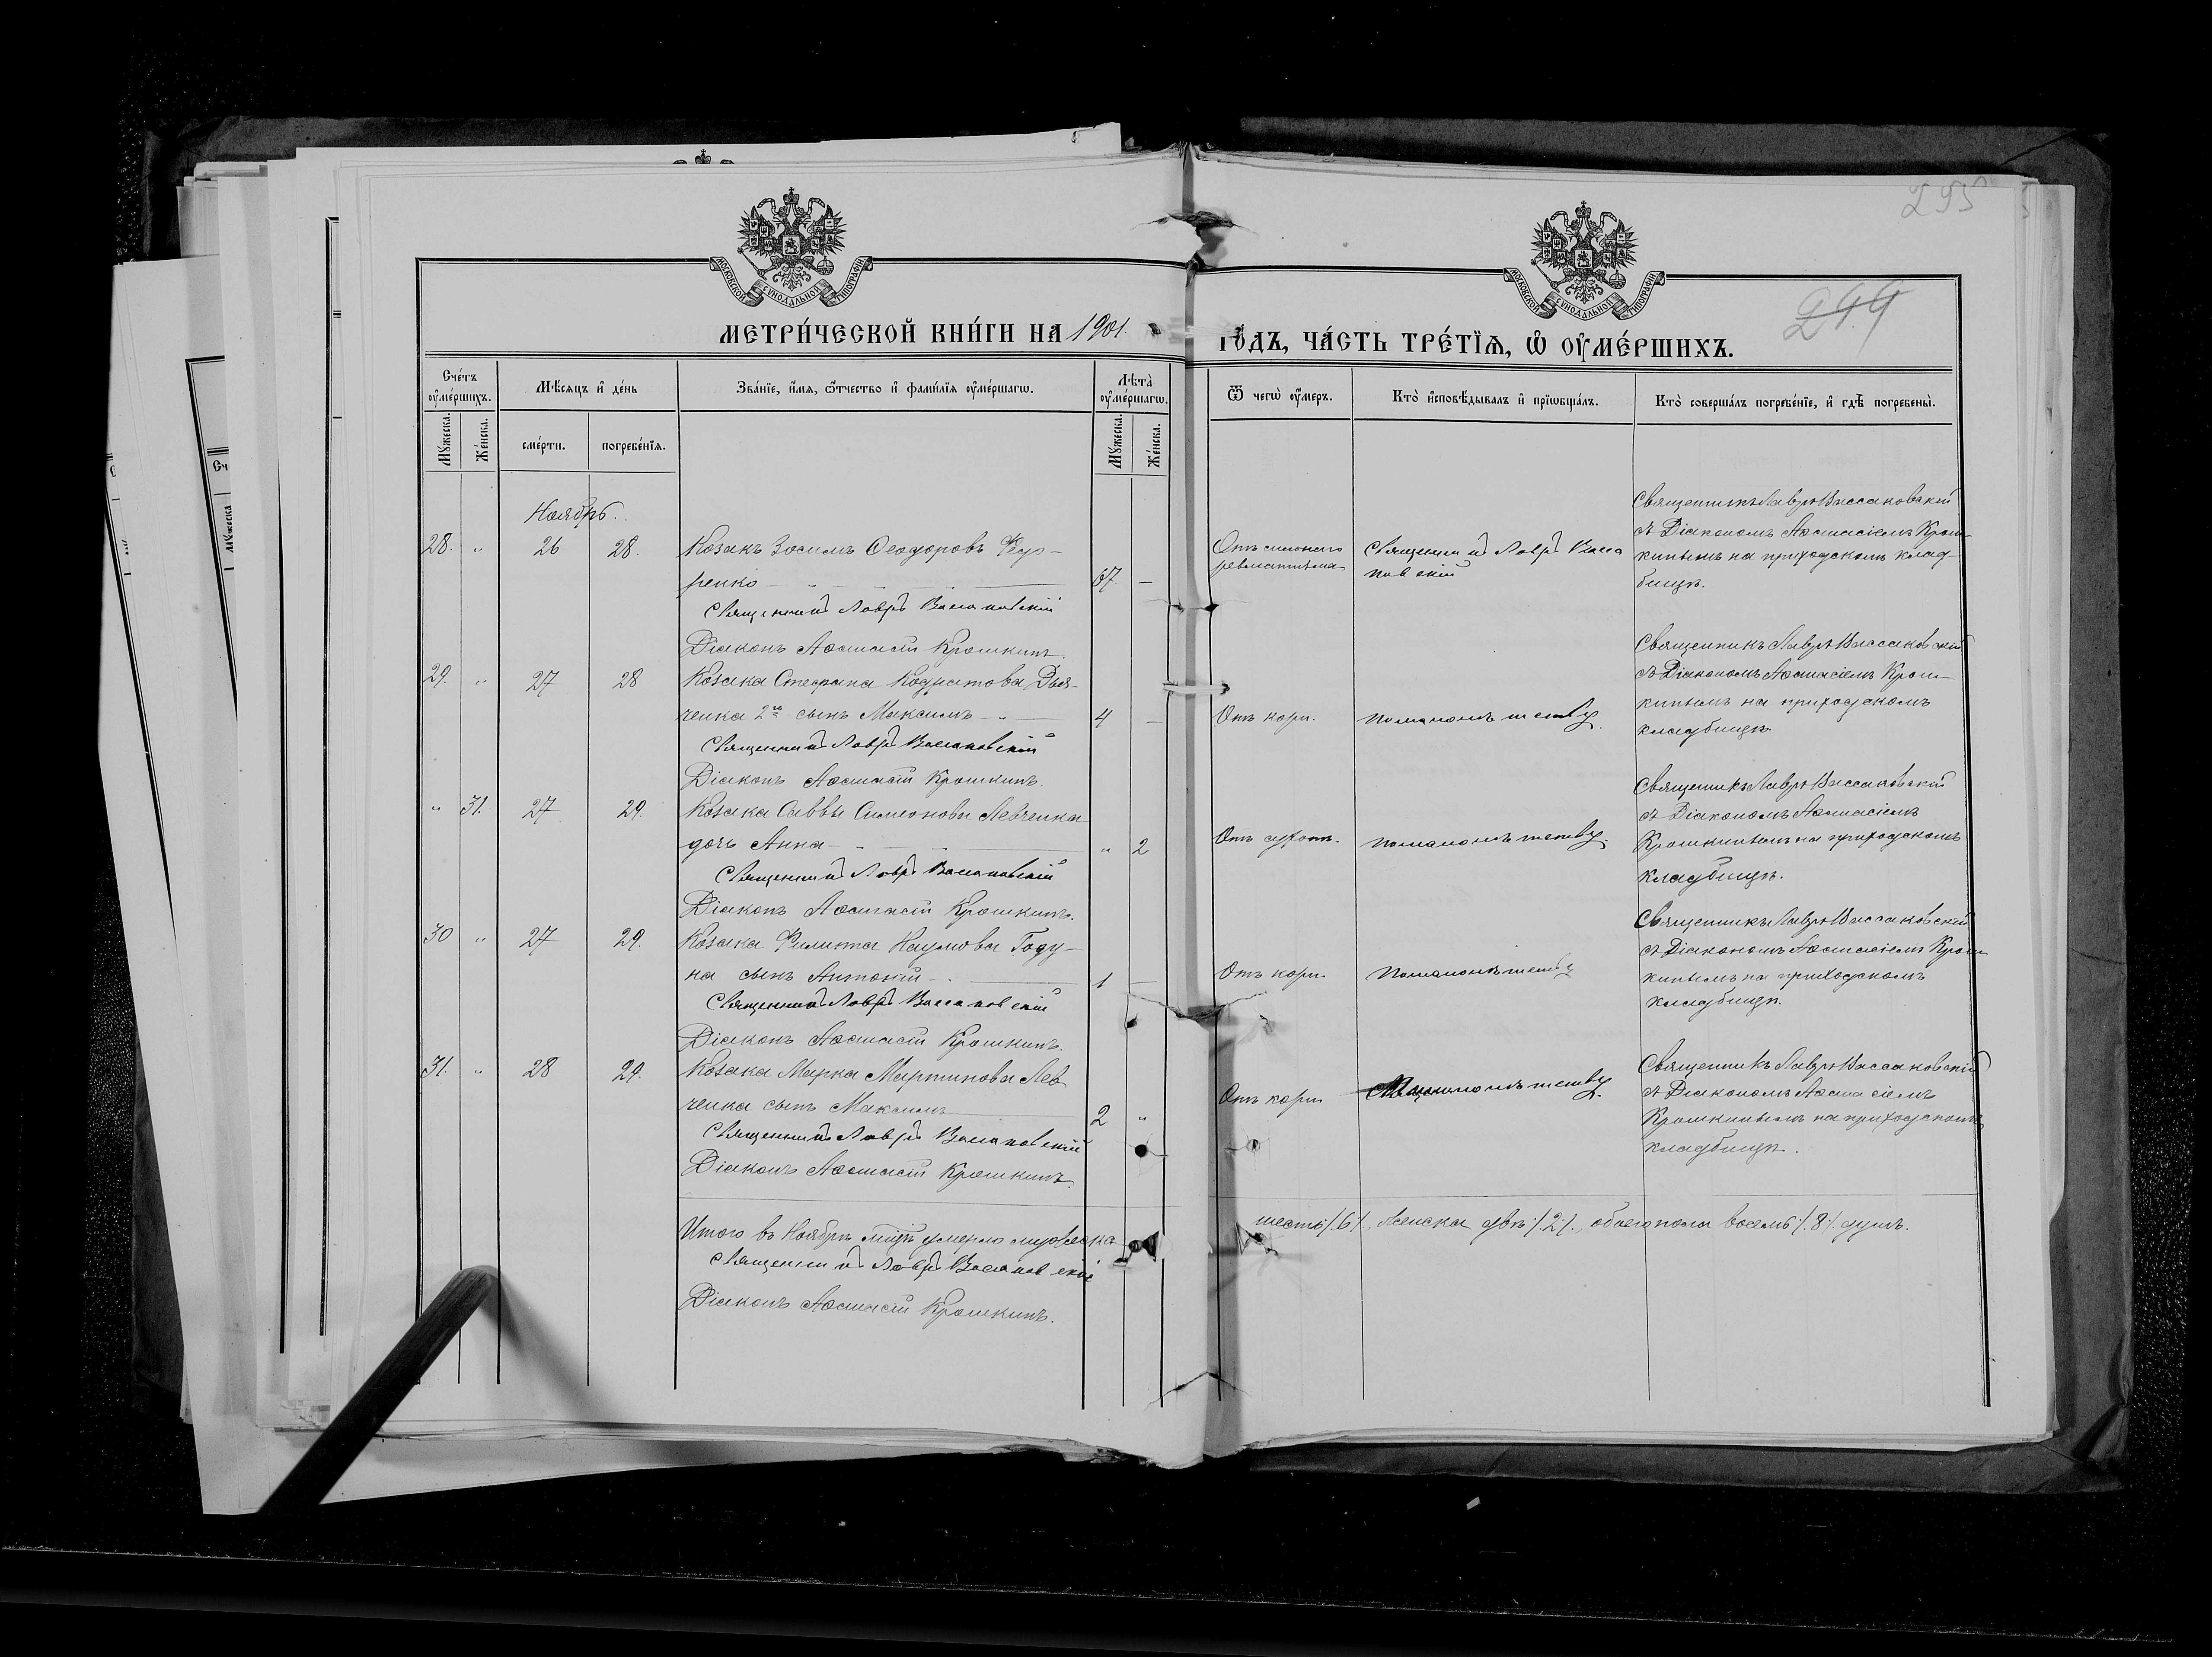 295
299
МОСКОВСКОЙ СѴНОДАЛЬНОЙ ТИПОГРАФІИ
МОСКОВСКОЙ СѴНОДАЛЬНОЙ ТИПОГРАФІИ
МЕТРИ́ЧЕСКОЙ КНИ́ГИ НА 1901 ГО́ДЪ, ЧА́СТЬ ТРЕ́ТІѦ, Ѡ ОУ҆МЕ́РШИХЪ.
Сче́тъ оу҆ме́ршихъ.
Мѣ́сяцъ и҆ де́нь
Зва́нїе, и҆́мя, ѻ҆́тчество и҆ фами́лїя оу҆ме́ршагѡ.
Лѣта̀ оу҆ме́ршагѡ.
Ѿ чегѡ̀ оу҆́меръ.
Кто̀ и҆сповѣ́дывалъ и҆ прїѡбща́лъ.
Кто̀ соверша́лъ погребе́нїе, и҆ гдѣ̀ погребены̀.
Мꙋ́жеска.
Же́нска.
сме́рти.
погребе́нїя.
Мꙋ́жеска.
Же́нска.
Ноябрь.
28. „ 26 28. Козакъ Зосимъ Ѳеодоровъ Федо-
ренко 67 —
Священникъ Лавръ Вассаковскій
Діаконъ Аѳанасій Крошкинъ.
Отъ сильнаго
ревматизма
Священникъ Лавръ Васса
ковскій
Священникъ Лавръ Вассаковскій
съ Діакономъ Аѳанасіемъ Крош-
кинымъ на приходскомъ клад-
бищѣ.
29. „ 27 28 Козака Стефана Кодратова Дья-
ченка 2й сынъ Максимъ 4 —
Священникъ Лавръ Вассаковскій
Діаконъ Аѳанасій Крошкинъ.
Отъ кори.
по малолѣтству.
Священникъ Лавръ Вассаковскій
съ Діакономъ Аѳанасіемъ Крош-
кинымъ на приходскомъ
кладбищѣ
„ 31. 27 29. Козака Саввы Симеонова Левченка
дочь Анна „ 2
Священникъ Лавръ Вассаковскій
Діаконъ Аѳанасій Крошкинъ.
Отъ сухот.
по малолѣтству.
Священникъ Лавръ Вассаковскій
съ Діакономъ Аѳанасіемъ
Крошкинымъ на приходскомъ
кладбищѣ.
30 „ 27 29. Козака Филиппа Наумова Году-
на сынъ Антоній 1 —
Священникъ Лавръ Вассаковскій
Діаконъ Аѳанасій Крошкинъ.
Отъ кори
по малолѣтству
Священникъ Лавръ Вассаковскій
съ Діакономъ Аѳанасіемъ Крош
кинымъ на приходскомъ
кладбищѣ.
31. „ 28 29. Козака Марка Мартинова Лев
ченка сынъ Максимъ 2 „
Священникъ Лавръ Вассаковскій
Діаконъ Аѳанасій Крошкинъ.
Отъ кори
по малолѣтству.
Священникъ Лавръ Вассаковскій
съ Діакономъ Аѳанасіемъ
Крошкинымъ на приходскомъ
кладбищѣ.
Итого въ Ноябрѣ мцѣ умерло мужеска шесть /.6/. женска двѣ /.2/. обоего пола восемь /.8/. душъ.
Священникъ Лавръ Вассаковскій
Діаконъ Аѳанасій Крошкинъ.